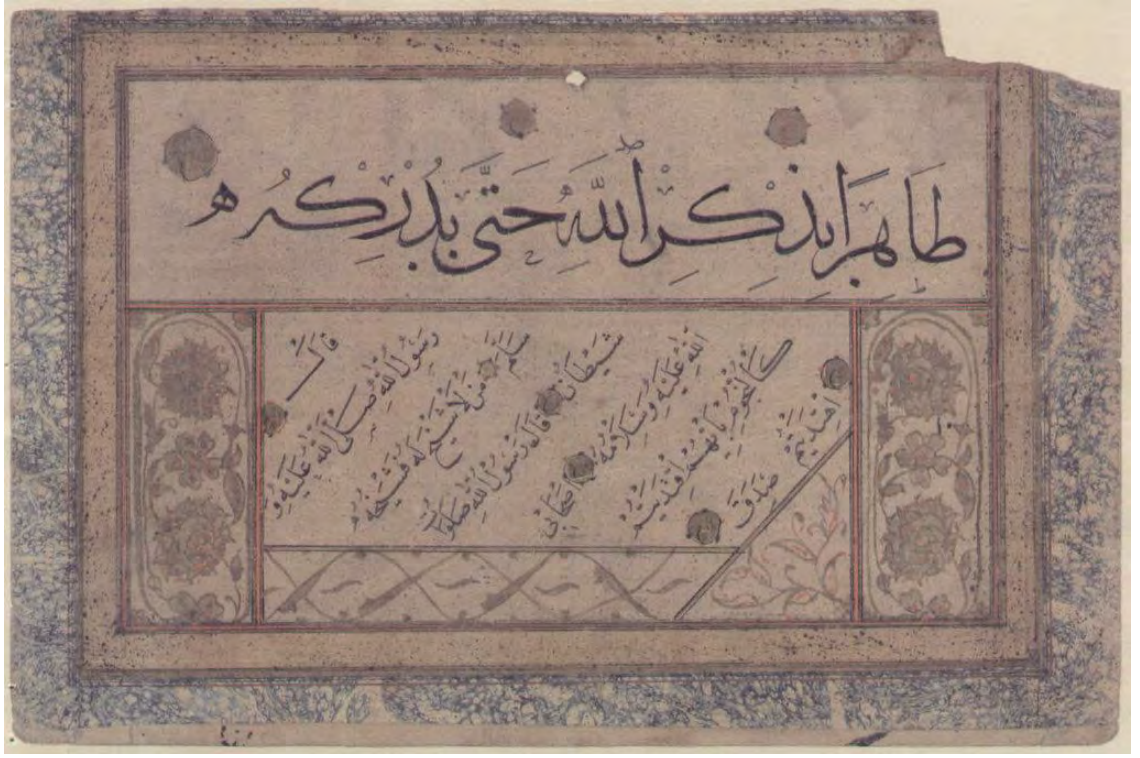 طَاهِرًا يَذْكُرُ اللهَ حَتَّى يُدْرِكَهُ
قال
رسول الله صلى الله عليه و
سلم من لا شيخ له فشيخه
شيطان قال رسول الله صلوات
الله عليه وسلامه اصحابى
كالنجوم بأيهم اقتديتم
اهتديتم
صدق